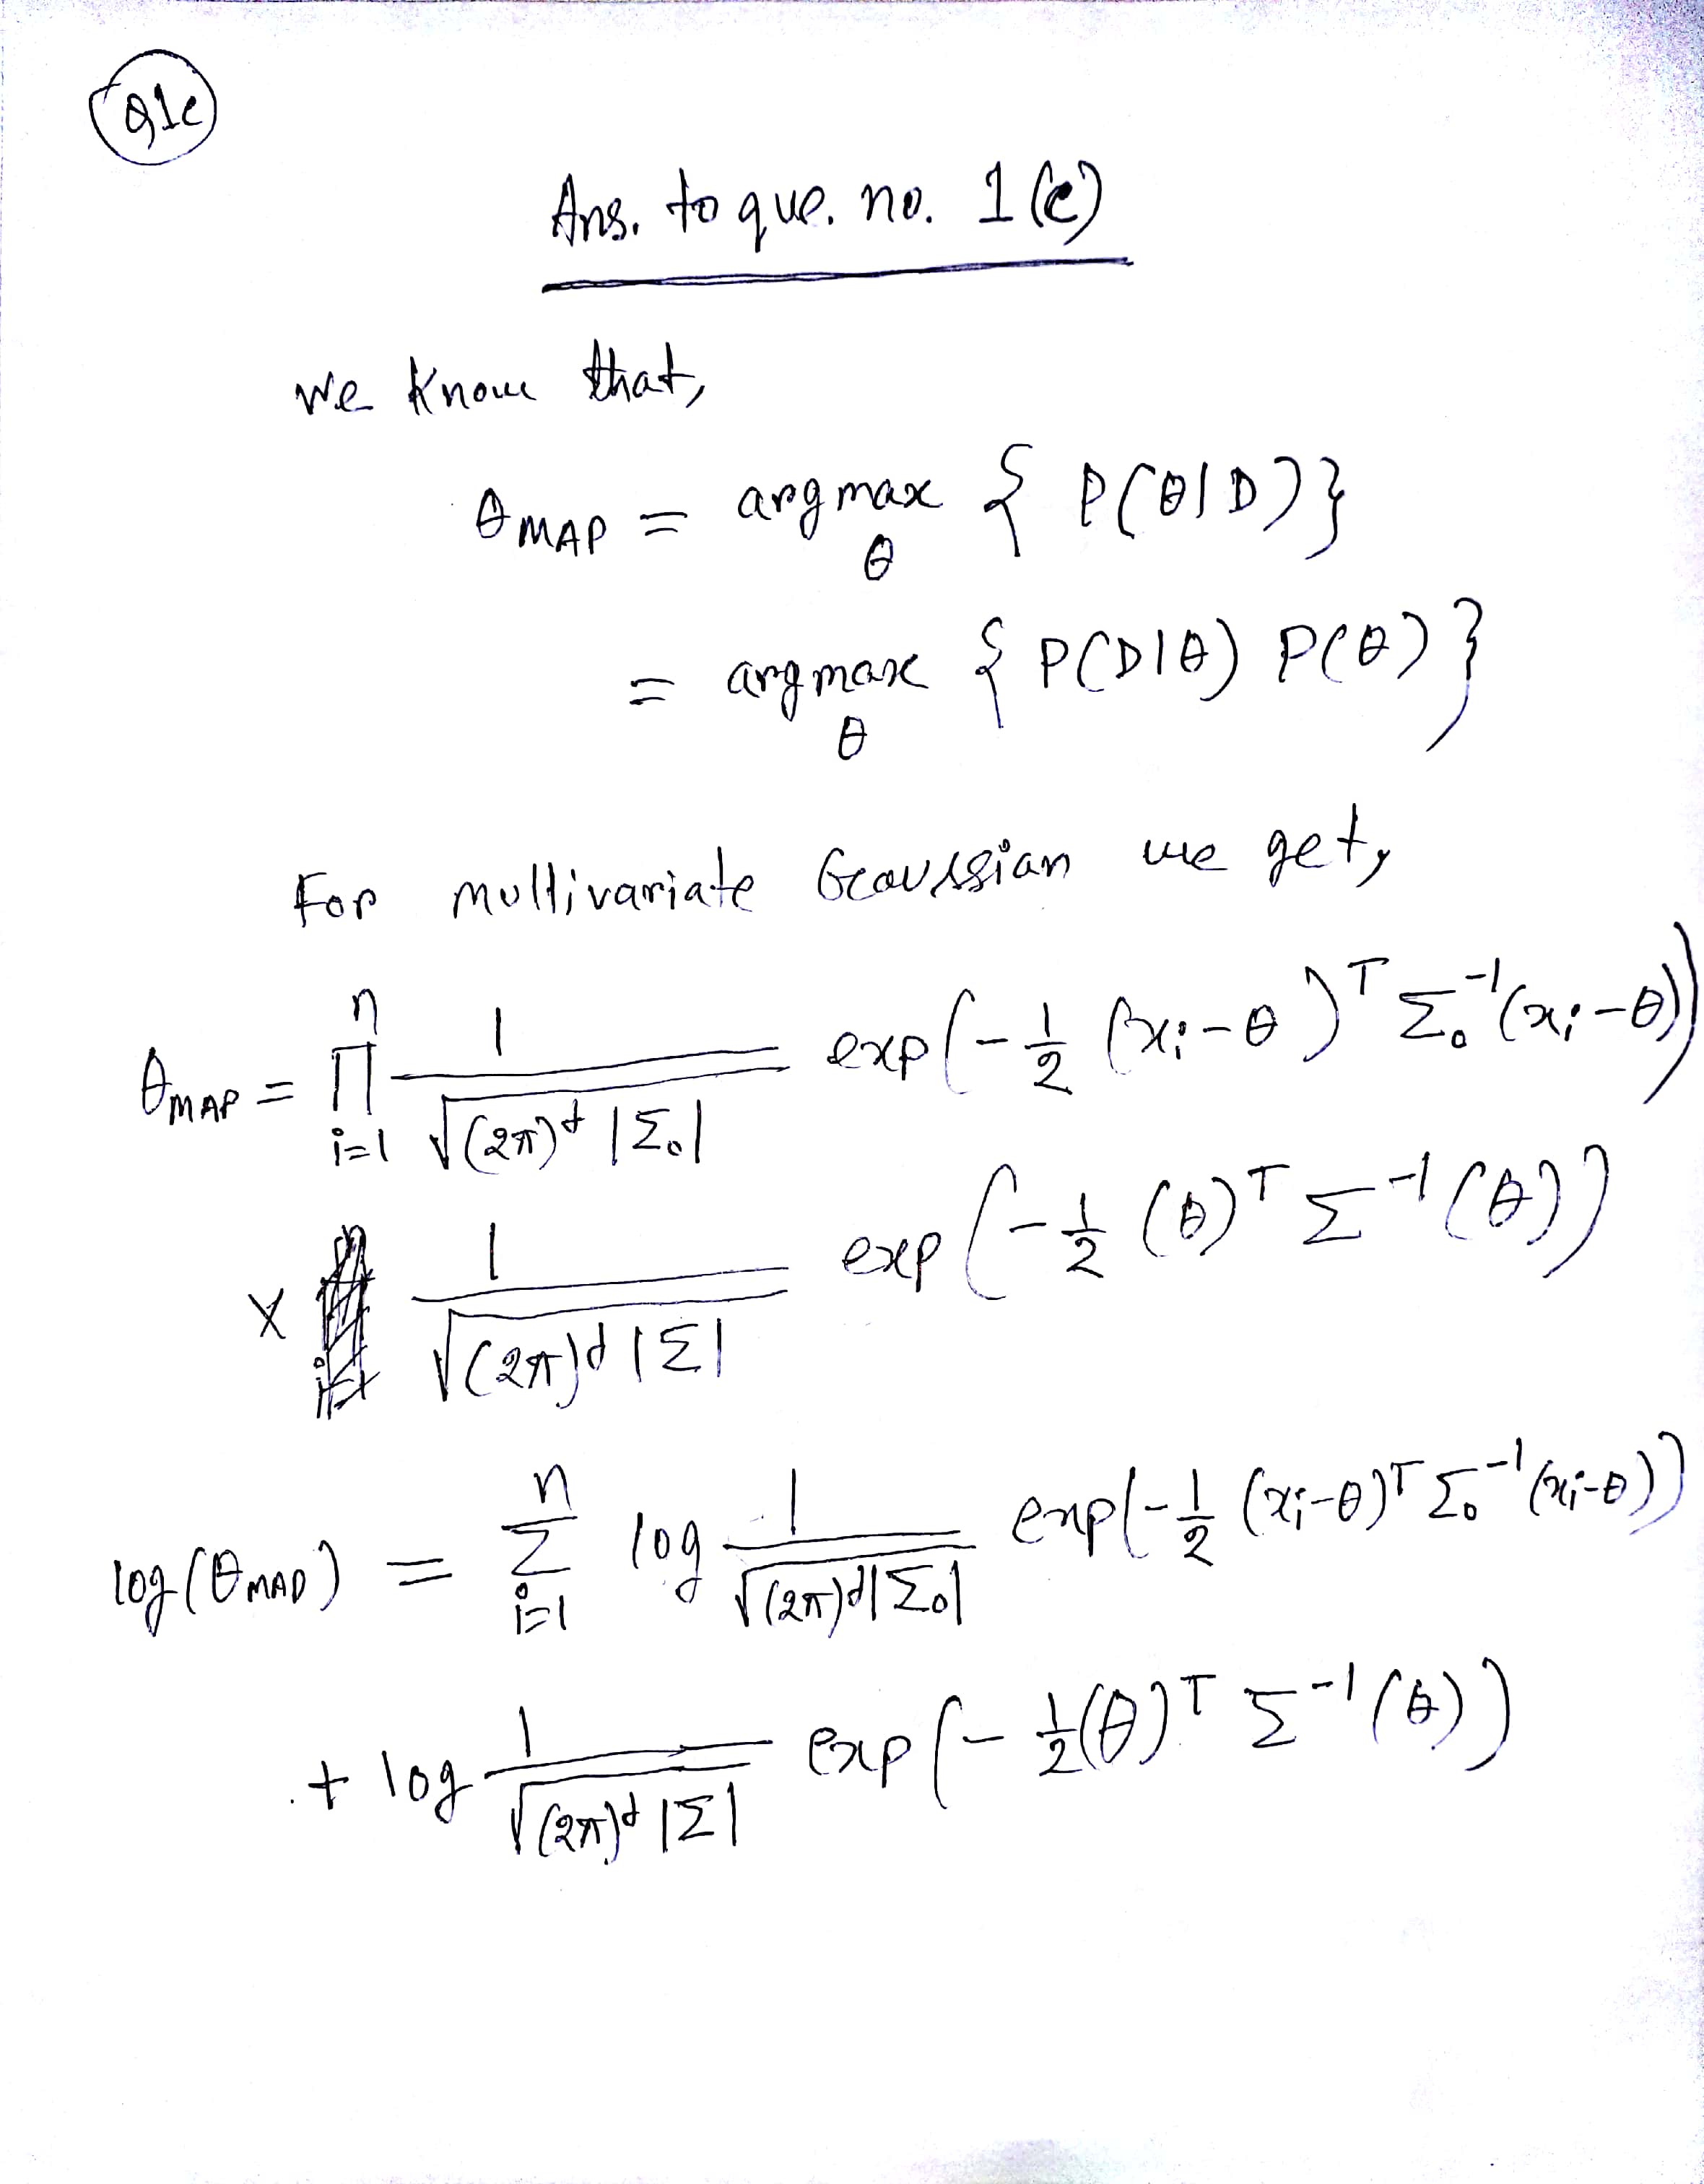 Q1e
Ans. to que. no. 1(e)
We know that,
θMAP = argmax { P(θ|D)}
θ
= argmax { P(D|θ) P(θ)}
θ
For multivariate Gaussian we get,
θMAP = ∏ i=1 n 1/√(2π)^d |Σ₀| exp(-1/2 (xi-θ)^T Σ₀^-1(xi-θ))
× 1/√(2π)^d |Σ| exp(-1/2 (θ)^T Σ^-1(θ))
log(θMAP) = Σ i=1 n log 1/√(2π)^d|Σ₀| exp(-1/2 (xi-θ)^T Σ₀^-1(xi-θ))
+ log 1/√(2π)^d |Σ| exp(-1/2(θ)^T Σ^-1(θ))